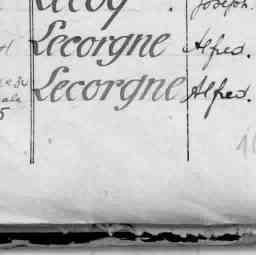 Lecoq . Joseph.
Lecorgne Alfred.
Lecorgne Alfred.